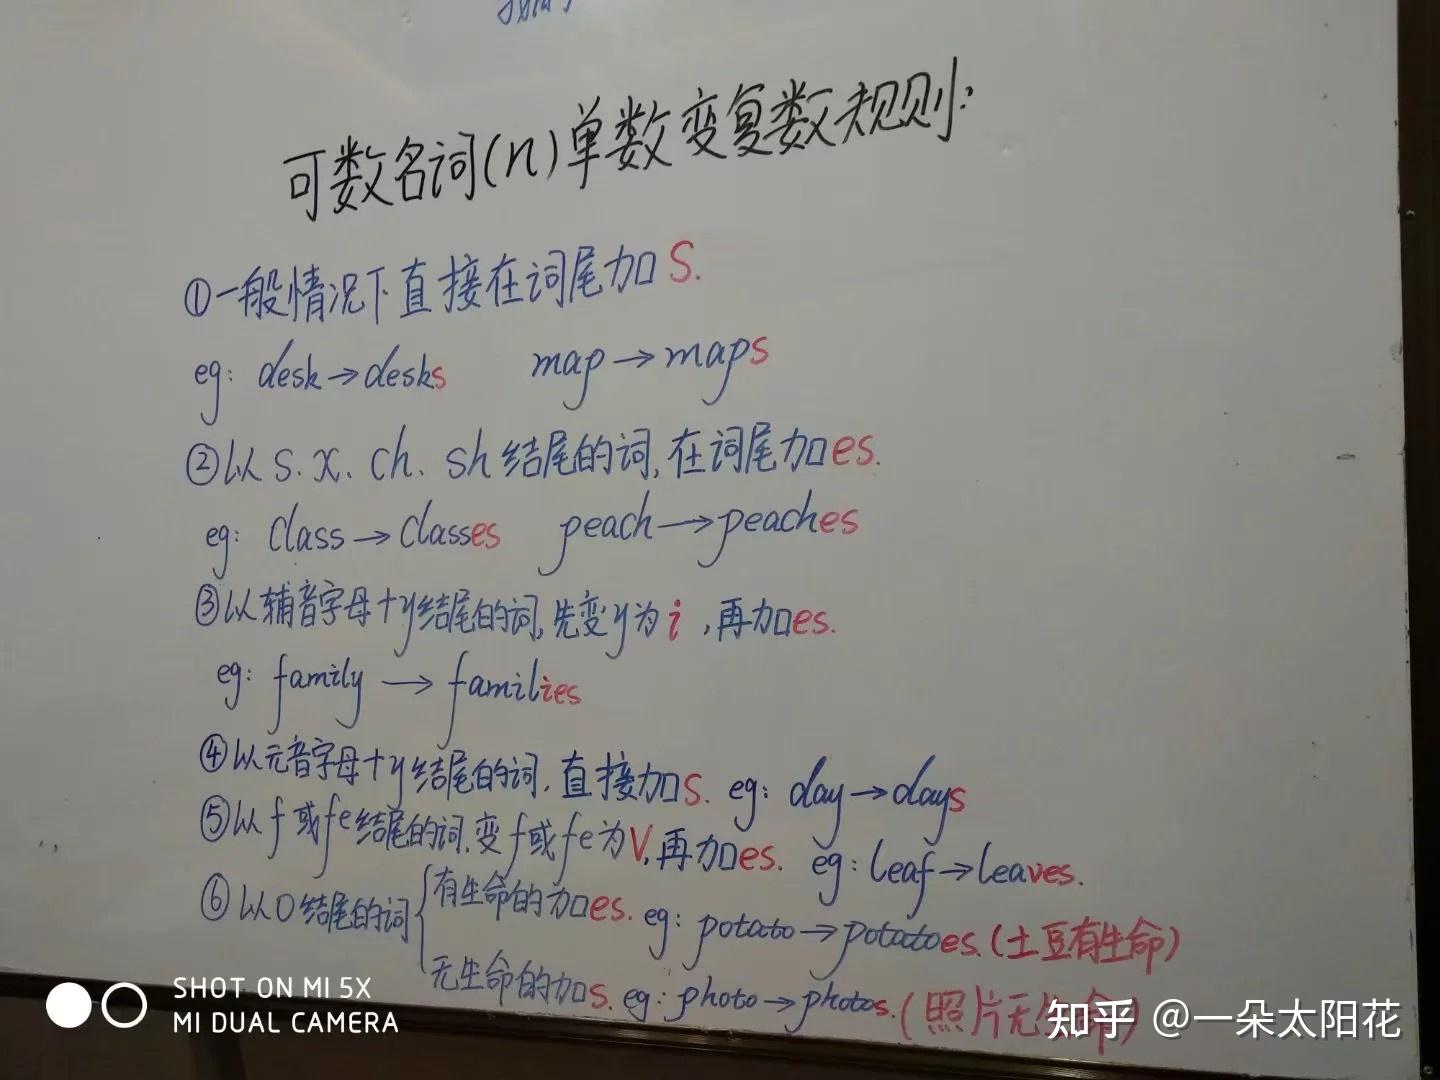 可数名词(n)单数变复数规则:
①一般情况下直接在词尾加s.
eg: desk→desks map→maps
②以s.x.ch.sh结尾的词,在词尾加es.
eg: class→classes peach→peaches
③以辅音字母+y结尾的词,先变y为i,再加es.
eg: family→families
④以元音字母+y结尾的词,直接加s. eg: day→days
⑤以f或fe结尾的词,变f或fe为v,再加es. eg: leaf→leaves.
⑥以o结尾的词
有生命的加es. eg: potato→potatoes.(土豆有生命)
无生命的加s. eg: photo→photos.(照片无生命)
SHOT ON MI 5X
MI DUAL CAMERA
知乎 @一朵太阳花